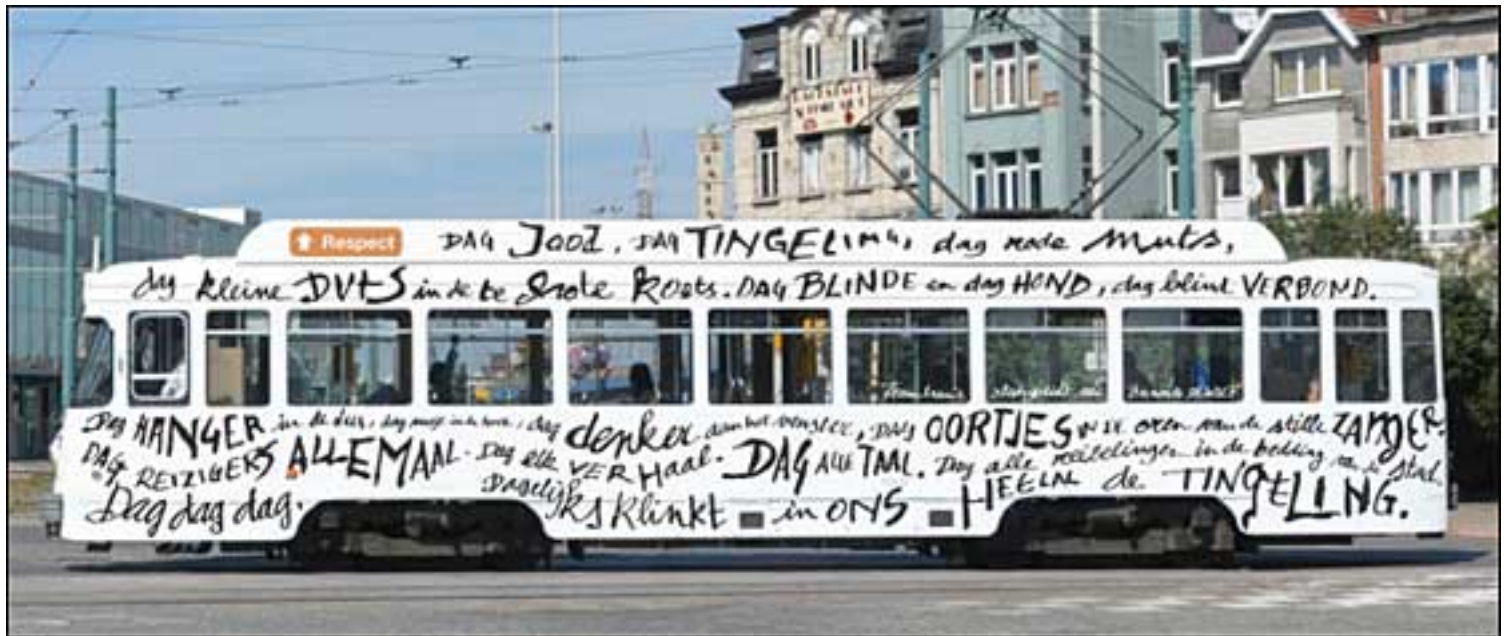 Respect
DAG Jood, DAG TINGELING, dag rode muts,
dag kleine DUTS in de te Grote Koets. DAG BLINDE en dag HOND, dag blind VERBOND.
Dag HANGER in de dag denker aan het venster, DAG OORTJES in de oren van de stille ZANGER.
DAG REIZIGERS ALLEMAAL. Dag elk VERHaal. DAG ALLE TAAL. Dag alle in de bedding van de stad.
Dag dag dag. Dagelijks klinkt in ONS HEELAL de TINGELING.